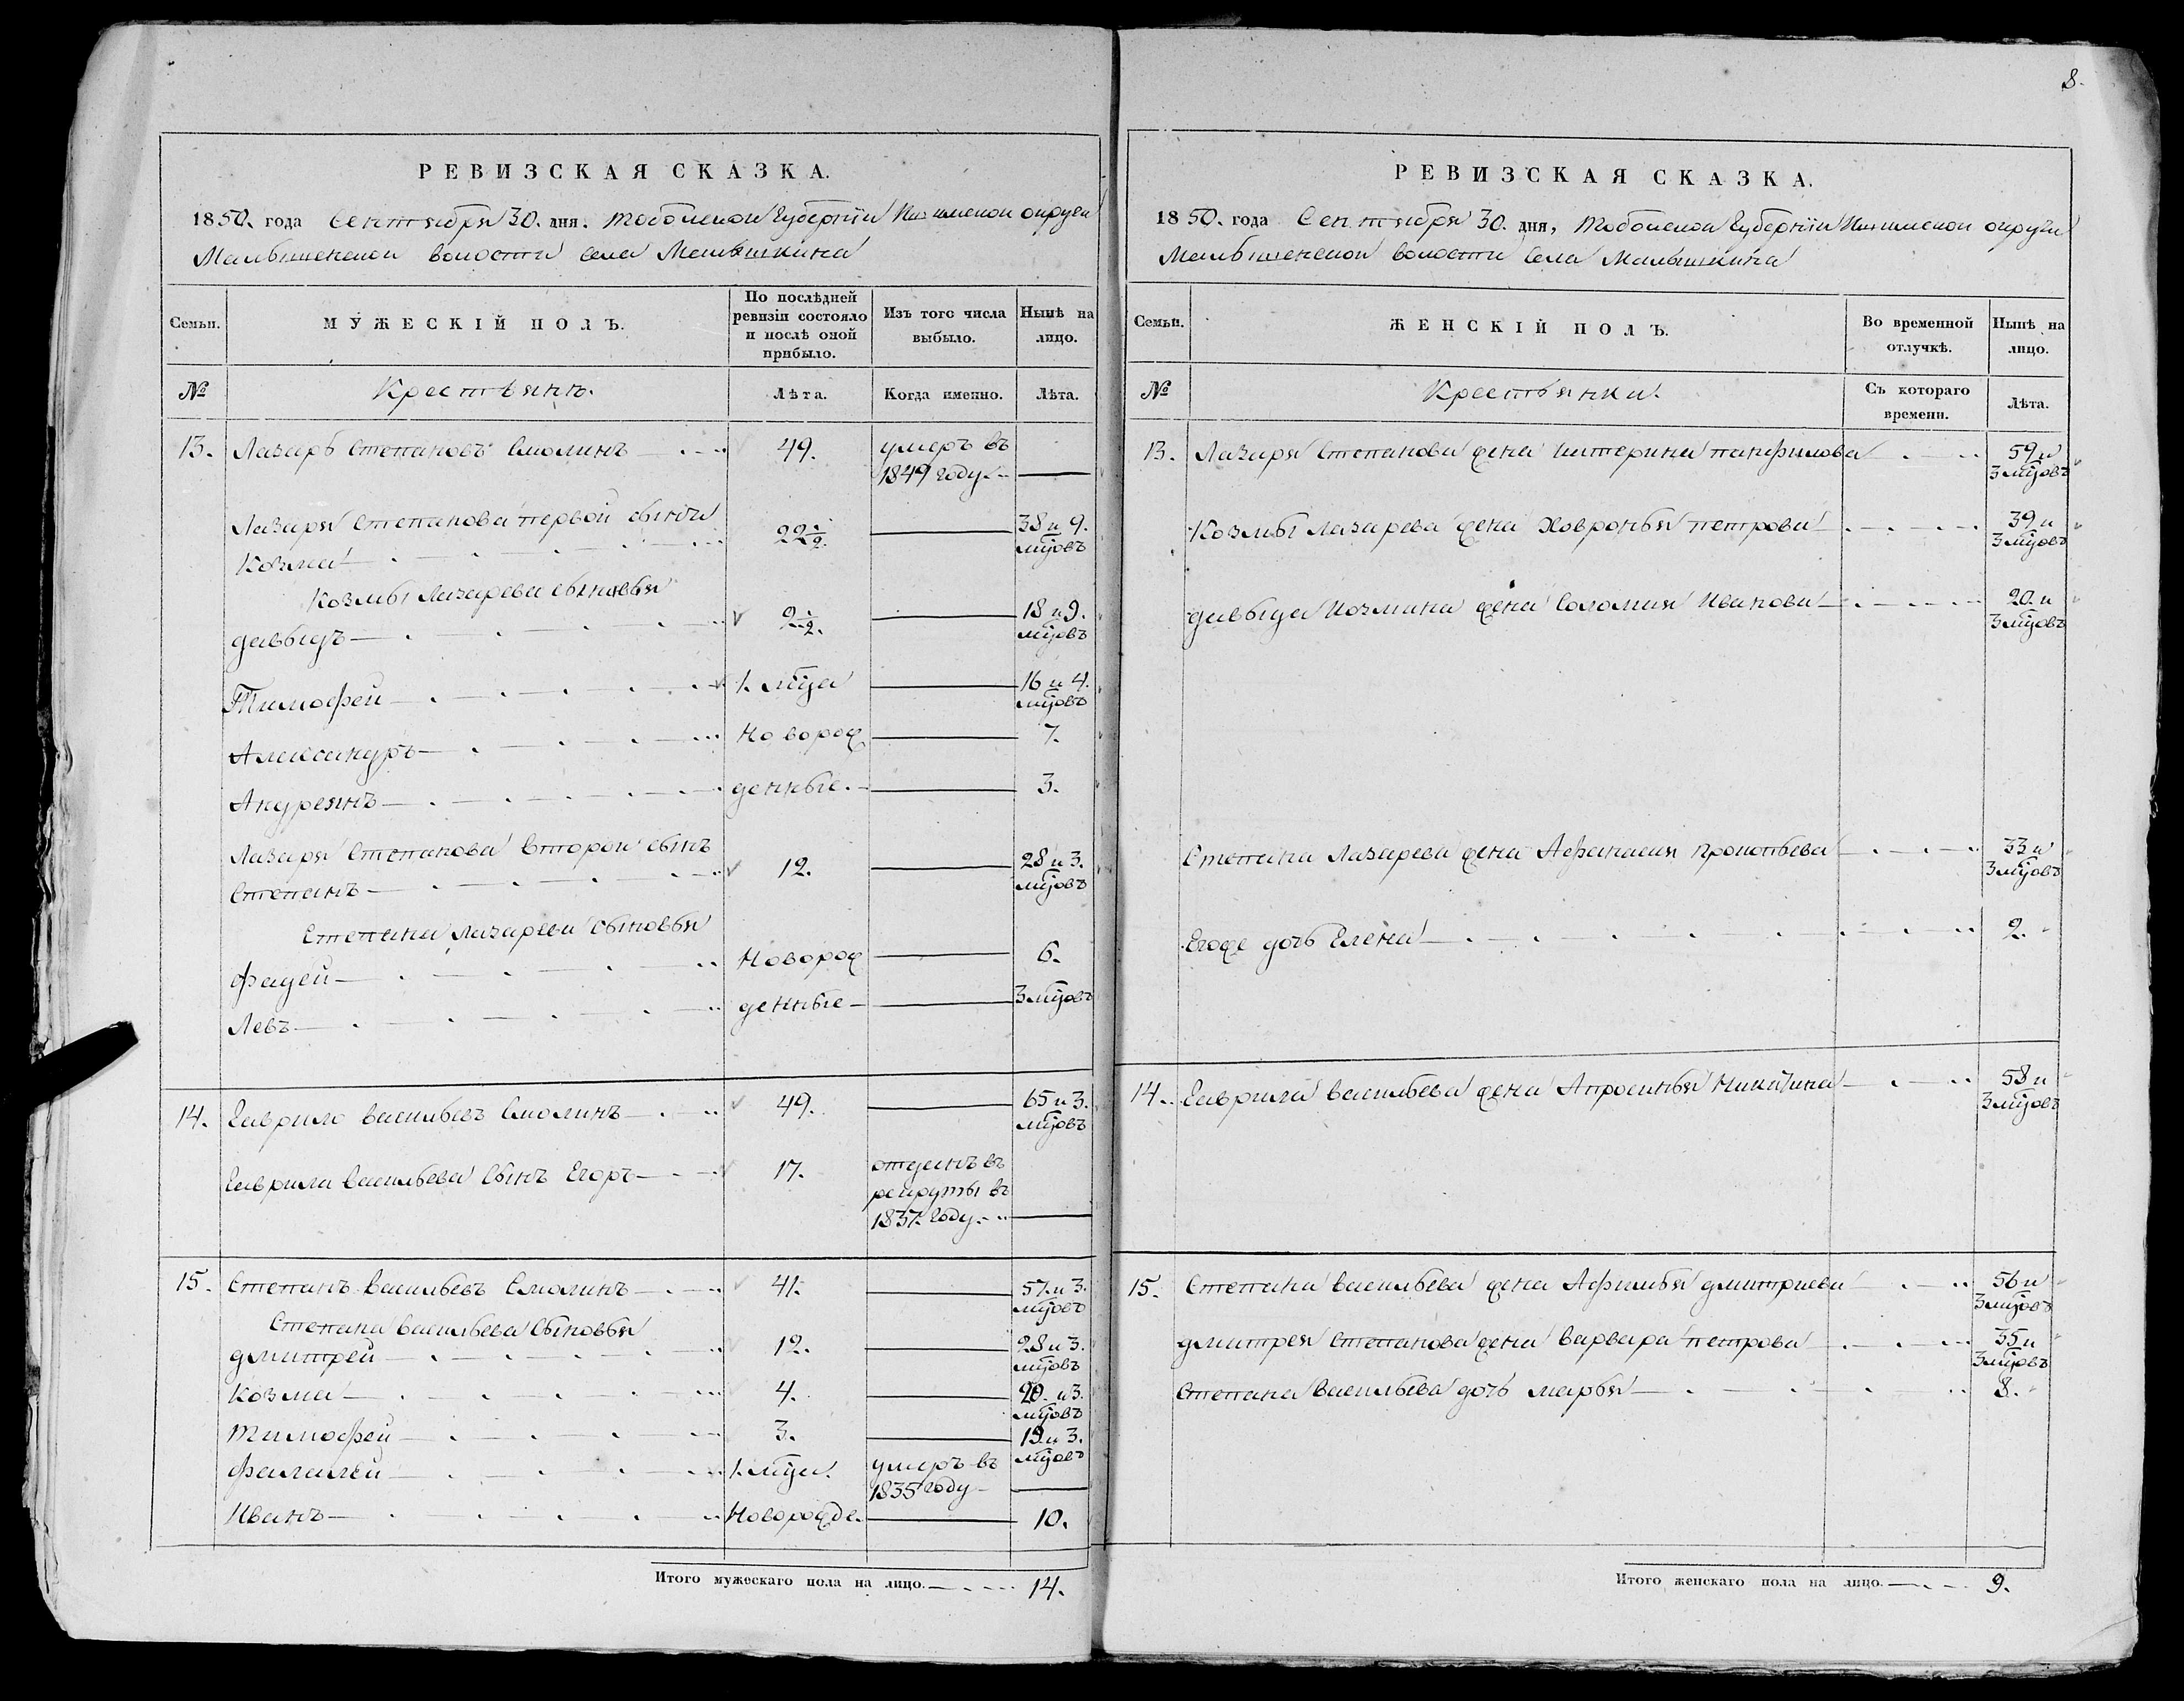 РЕВИЗСКАЯ СКАЗКА.
1850. года Сентября 30. дня. Тобольской Губернiи Ишимской округи
Малышенской волости села Малышкина
Семьи.
МУЖЕСКIЙ ПОЛЪ.
По послѣдней
ревизiи состояло
и послѣ оной
прибыло.
Изъ того числа
выбыло.
Нынѣ на
лицо.
№
Крестьянъ.
Лѣта.
Когда именно.
Лѣта.
13. Лазарь Степановъ Смолинъ 49. умеръ въ
1849 году
Лазаря Степанова первой сынъ 22 1/2 38 и 9.
Козма мцовъ
Козмы Лазарева сыновья
Давыдъ 2 1/2. 18 и 9.
мцовъ
Тимофей 1. мца 16 и 4.
мцовъ
Александръ Новорож 7.
Андреянъ денные. 3.
Лазаря Степанова второй сынъ
Степанъ 12. 28 и 3.
мцовъ
Степана Лазарева сыновья
Фадей Новорож 6.
Левъ денные 3 мцовъ
14. Гаврило Васильевъ Смолинъ 49. 65 и 3.
мцовъ
Гаврила Васильева сынъ Егоръ 17. отданъ въ
рекруты въ
1837. году
15. Степанъ Васильевъ Смолинъ 41. 57. и 3.
мцовъ
Степана Васильева сыновья
Дмитрей 12. 28 и 3.
мцовъ
Козма 4. 20. и 3.
мцовъ
Тимофей 3. 19. и 3.
мцовъ
Фалалей 1. мца. умеръ въ
1835 году
Иванъ Новорожде. 10.
Итого мужескаго пола на лицо. 14.
8.
РЕВИЗСКАЯ СКАЗКА.
1850. года Сентября 30. дня, Тобольской Губернiи Ишимской округи
Малышенской волости села Малышкина
Семьи.
ЖЕНСКIЙ ПОЛЪ.
Во временной
отлучкѣ.
Нынѣ на
лицо.
№
Крестьянки.
Съ котораго
времени.
Лѣта.
13. Лазаря Степанова жена Катерина Панфилова 59 и
3 мцовъ
Козмы Лазарева жена Ховронья Петрова 39 и
3 мцовъ
Давыда Козмина жена Соломия Иванова 20. и
3 мцовъ
Степана Лазарева жена Афанасия Прокопьева 33 и
3 мцовъ
Егоже дочь Елена 2.
14. Гаврила Васильева жена Апросинья Никитина 58 и
3 мцовъ
15. Степана Васильева жена Афимья Дмитриева 56 и
3 мцовъ
Дмитрея Степанова жена Варвара Петрова 35 и
3 мцовъ
Степана Васильева дочь Марья 8.
Итого женскаго пола на лицо. 9.